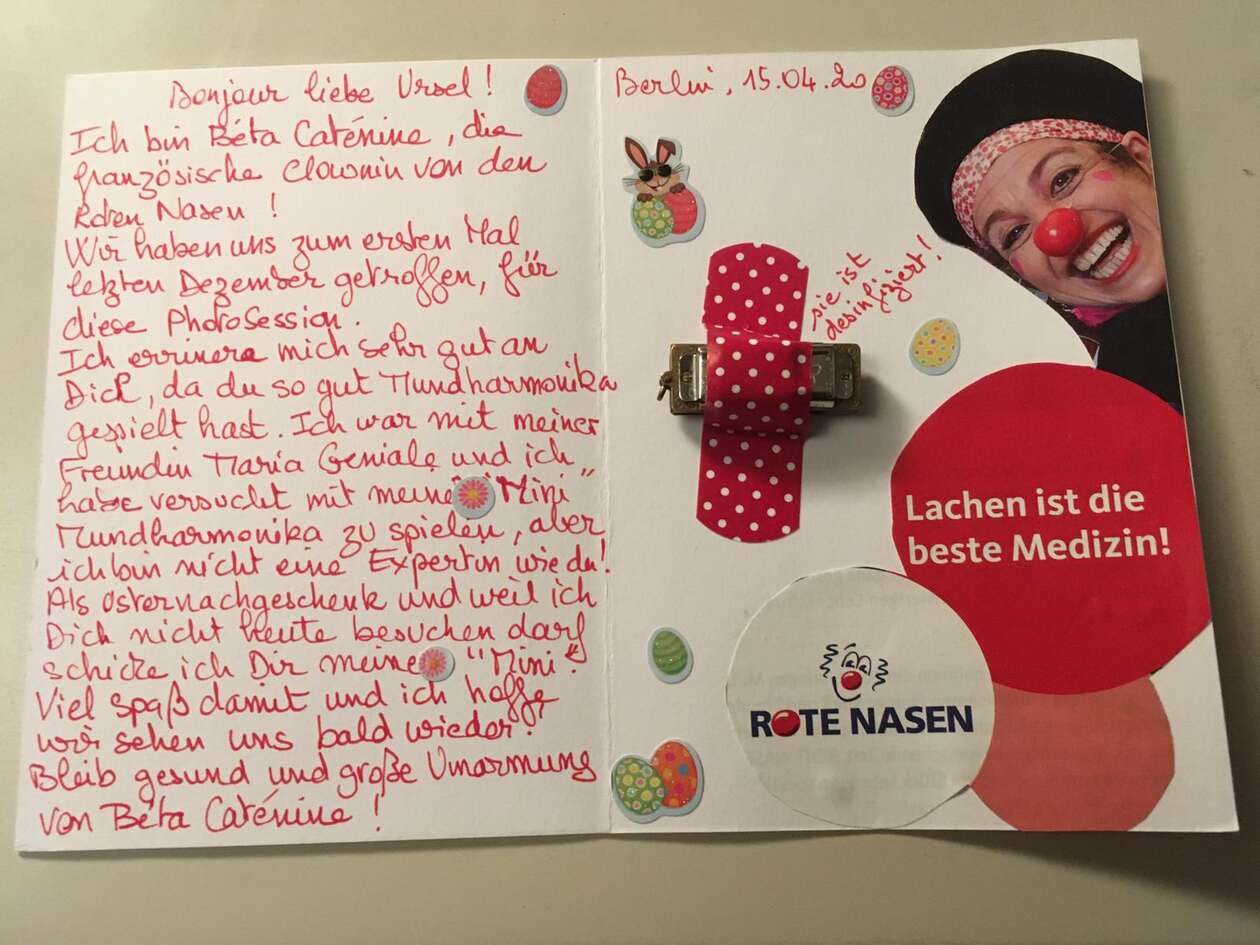 Bonjour liebe Ursel !
Ich bin Béta Caténine, die
französische Clownin von den
Roten Nasen !
Wir haben uns zum ersten Mal
letzten Dezember getroffen, für
diese PhotoSession.
Ich errinere mich sehr gut an
Dich, da du so gut Mundharmonika
gespielt hast. Ich war mit meiner
Freundin Maria Geniale und ich
habe versucht mit meine "Mini"
Mundharmonika zu spielen, aber
ich bin nicht eine Expertin wie du!
Als Osternachgeschenk und weil ich
Dich nicht heute besuchen darf
schicke ich Dir meine "Mini".
Viel Spaß damit und ich hoffe
wir sehen uns bald wieder!
Bleib gesund und große Umarmung
von Béta Caténine !
Berlin, 15.04.20
sie ist
desinfiziert!
Lachen ist die
beste Medizin!
ROTE NASEN